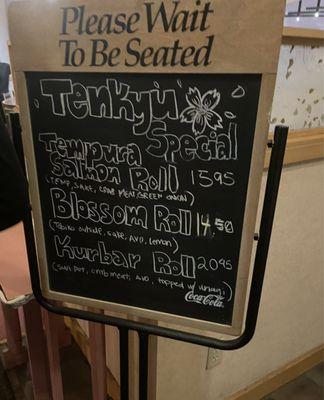 Please Wait
To Be Seated
Tenkyu
Special
Tempura
Salmon Roll 15.95
(Temp, sake, crab meat, green onion)
Blossom Roll 14.50
(Tobiko outside, sake, avo, lemon)
Kurbar Roll 20.95
(Sun pot, crab meat, avo, topped w/ unagi)
Coca-Cola